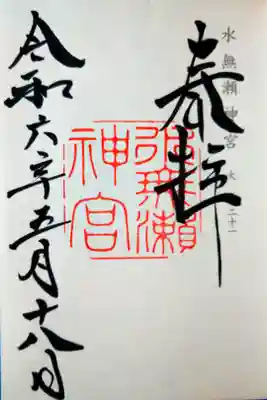 水無瀬神宮
奉拝
水無瀬
神宮
令和六年五月十八日